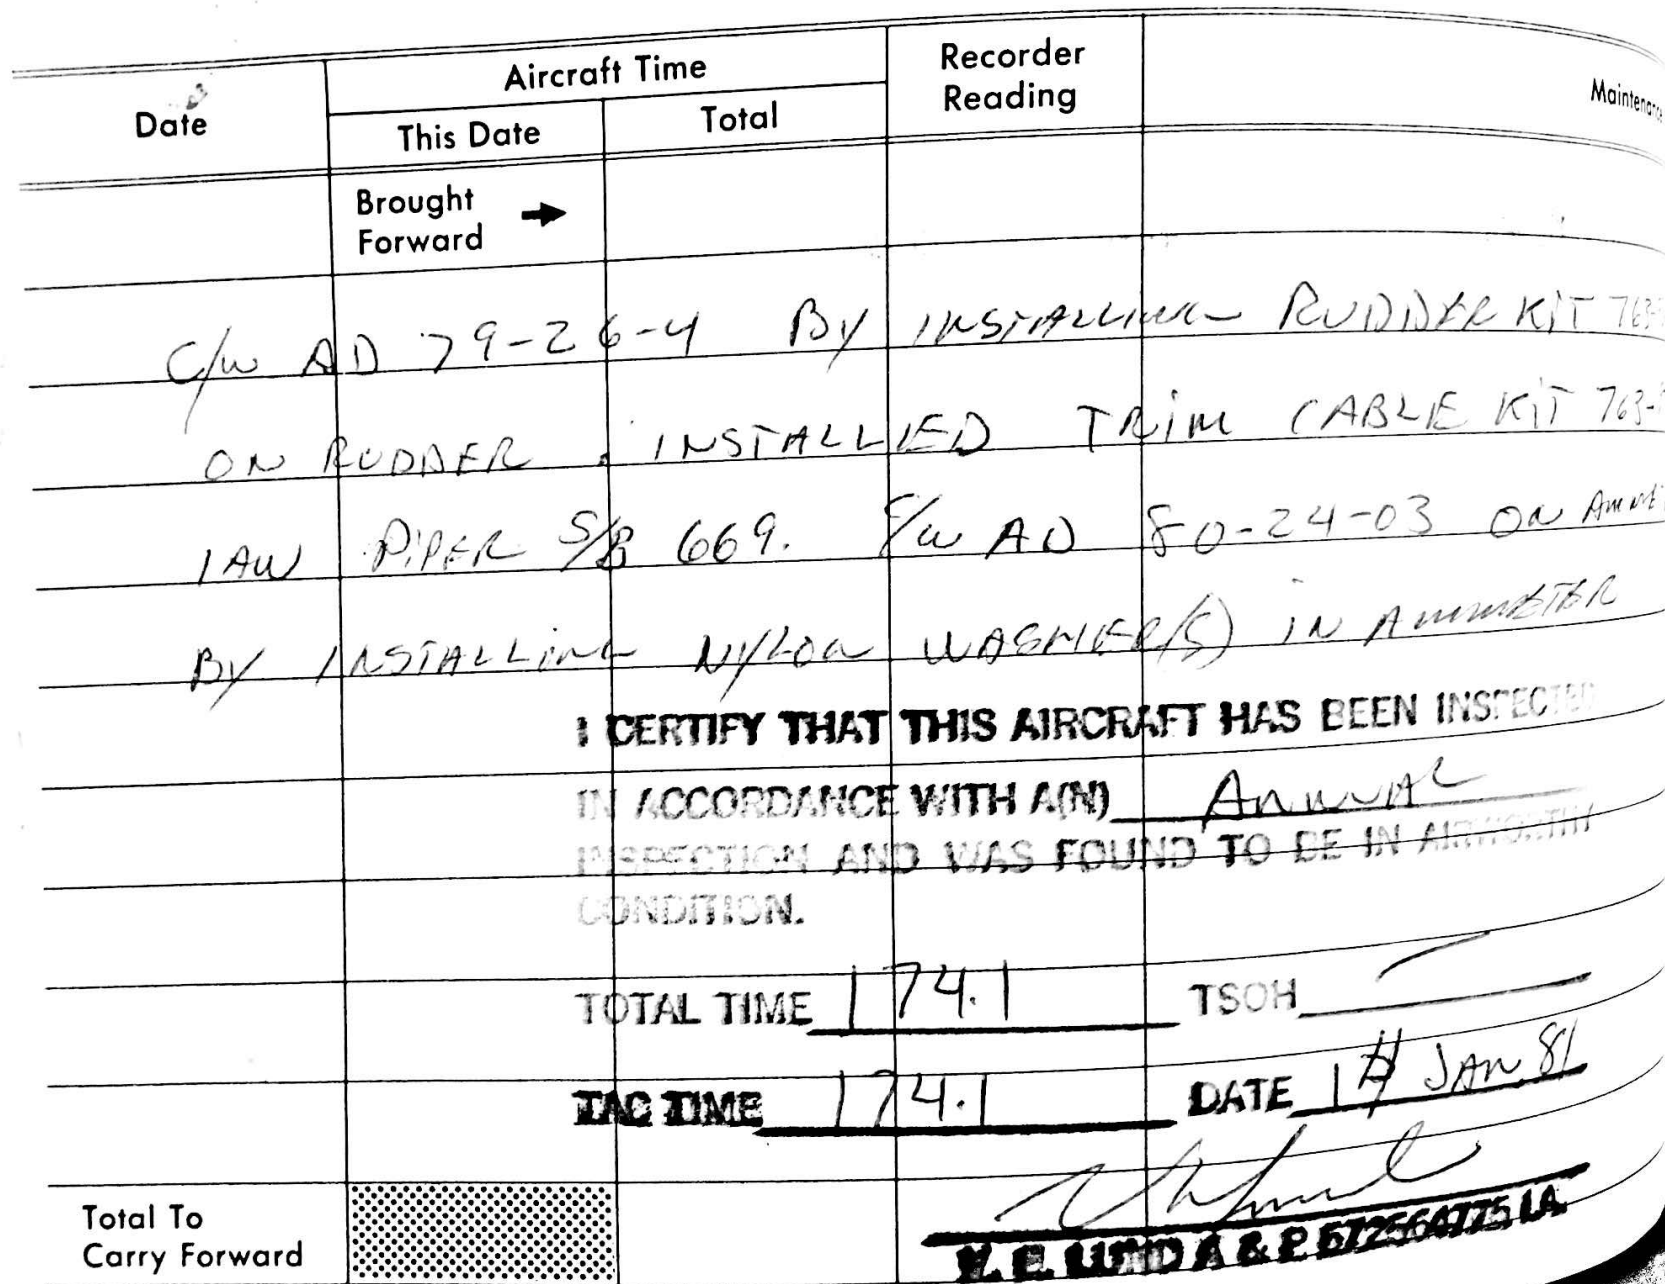 Date
Aircraft Time
This Date
Total
Recorder
Reading
Maintenanc
Brought
Forward →
C/W AD 79-26-4 BY INSTALLING RUDDER KIT 763-
ON RUDDER. INSTALLED TRIM CABLE KIT 763-
IAW PIPER S/B 669. C/W AD 80-24-03 ON Amme
BY INSTALLING NYLON WASHER(S) IN AMMETER
I CERTIFY THAT THIS AIRCRAFT HAS BEEN INSPECTED
IN ACCORDANCE WITH A(N) ANNUAL
INSPECTION AND WAS FOUND TO BE IN AIRWORTHY
CONDITION.
TOTAL TIME 174.1 TSOH —
TAC TIME 174.1 DATE JAN 81
LUND A & P 572564775 I.A.
Total To
Carry Forward